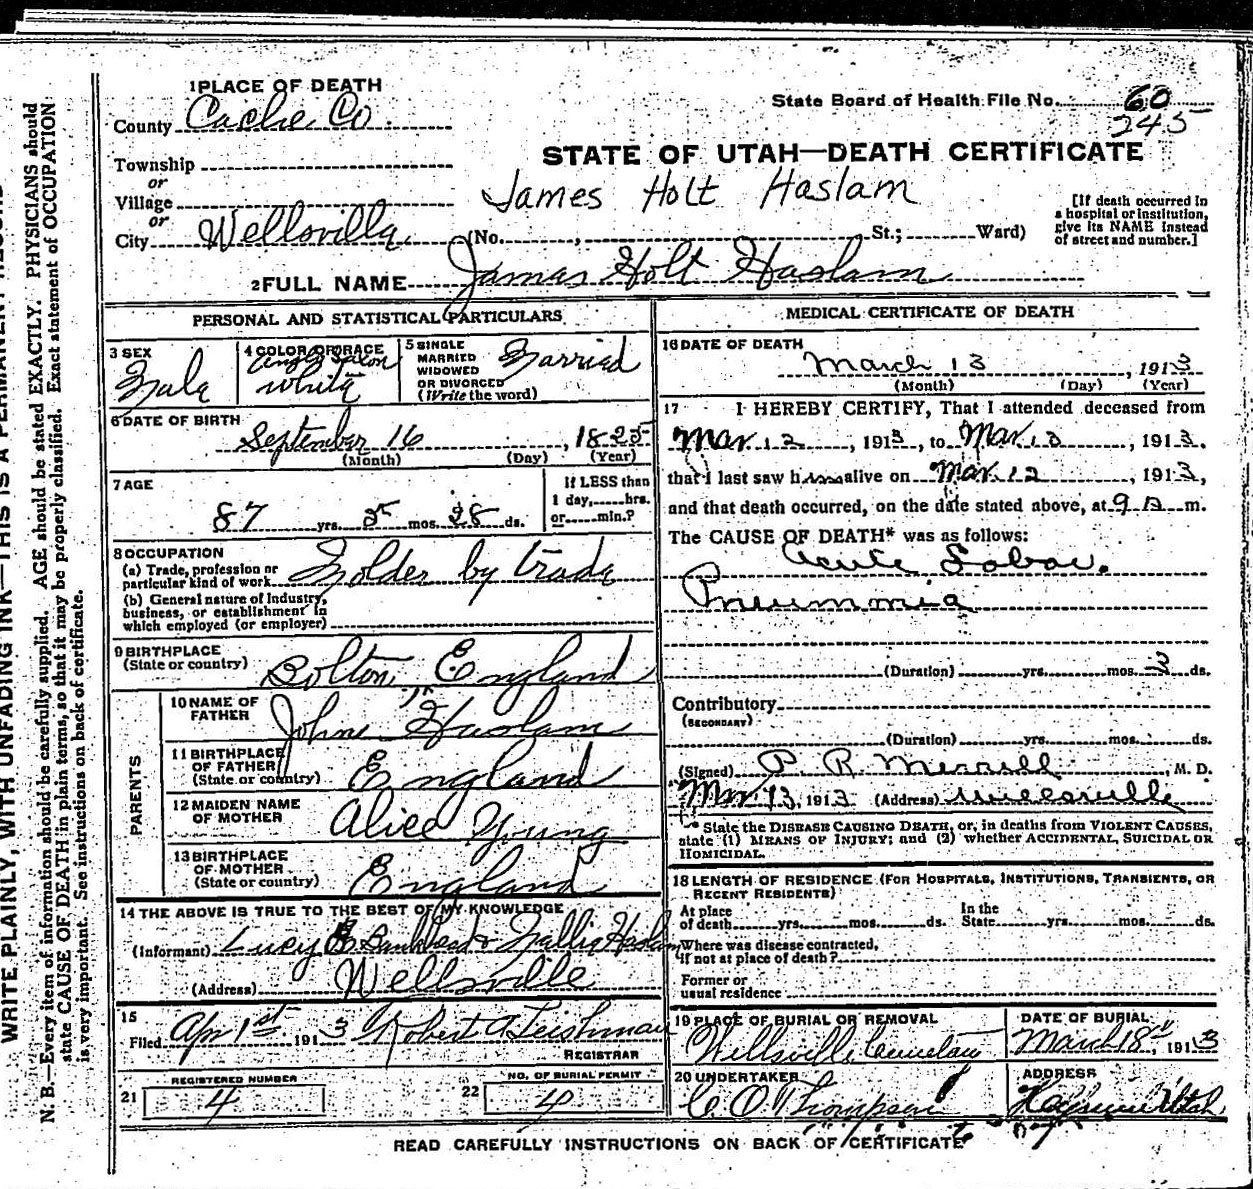 WRITE PLAINLY, WITH UNFADING INK—THIS IS A PERMANENT RECORD
N. B.—Every item of information should be carefully supplied. AGE should be stated EXACTLY. PHYSICIANS should
state CAUSE OF DEATH in plain terms, so that it may be properly classified. Exact statement of OCCUPATION
is very important. See instructions on back of certificate.
1 PLACE OF DEATH
County Cache Co
State Board of Health File No. 60
245
STATE OF UTAH—DEATH CERTIFICATE
Township
or
Village
or
James Holt Haslam
[If death occurred in
a hospital or institution,
give its NAME instead
of street and number.]
City Wellsville (No. , St.; Ward)
2 FULL NAME James Holt Haslam
PERSONAL AND STATISTICAL PARTICULARS
3 SEX
Male
4 COLOR OR RACE
Anglo Saxon
white
5 SINGLE
MARRIED
WIDOWED
OR DIVORCED
(Write the word)
Married
6 DATE OF BIRTH
September 16, 1825
(Month) (Day) (Year)
7 AGE
87 yrs. 5 mos. 28 ds.
If LESS than
1 day, hrs.
or min.?
8 OCCUPATION
(a) Trade, profession or
particular kind of work Molder by trade
(b) General nature of industry,
business, or establishment in
which employed (or employer)
9 BIRTHPLACE
(State or country) Bolton, England
PARENTS
10 NAME OF
FATHER John Haslam
11 BIRTHPLACE
OF FATHER
(State or country) England
12 MAIDEN NAME
OF MOTHER Alice Young
13 BIRTHPLACE
OF MOTHER
(State or country) England
14 THE ABOVE IS TRUE TO THE BEST OF MY KNOWLEDGE
(Informant) Lucy Bankhead & Haslam
(Address) Wellsville
15
Filed Apr 1st 1913 Robert A Leishman
REGISTRAR
21 REGISTERED NUMBER
4
22 NO. OF BURIAL PERMIT
4
MEDICAL CERTIFICATE OF DEATH
16 DATE OF DEATH
March 13, 1913
(Month) (Day) (Year)
17 I HEREBY CERTIFY, That I attended deceased from
Mar. 12, 1913, to Mar. 13, 1913,
that I last saw him alive on Mar. 12, 1913,
and that death occurred, on the date stated above, at 9 A m.
The CAUSE OF DEATH* was as follows:
Acute Lobar
Pneumonia
(Duration) yrs. mos. ds.
Contributory
(SECONDARY)
(Duration) yrs. mos. ds.
(Signed) P. R. Merrill, M. D.
Mar 13, 1913 (Address) Wellsville
* State the DISEASE CAUSING DEATH, or, in deaths from VIOLENT CAUSES,
state (1) MEANS OF INJURY; and (2) whether ACCIDENTAL, SUICIDAL OR
HOMICIDAL.
18 LENGTH OF RESIDENCE (FOR HOSPITALS, INSTITUTIONS, TRANSIENTS, OR
RECENT RESIDENTS)
At place
of death yrs. mos. ds.
In the
State yrs. mos. ds.
Where was disease contracted,
if not at place of death?
Former or
usual residence
19 PLACE OF BURIAL OR REMOVAL
Wellsville Cemetery
DATE OF BURIAL
March 18th, 1913
20 UNDERTAKER
C O Thompson
ADDRESS
Hyrum Utah
READ CAREFULLY INSTRUCTIONS ON BACK OF CERTIFICATE